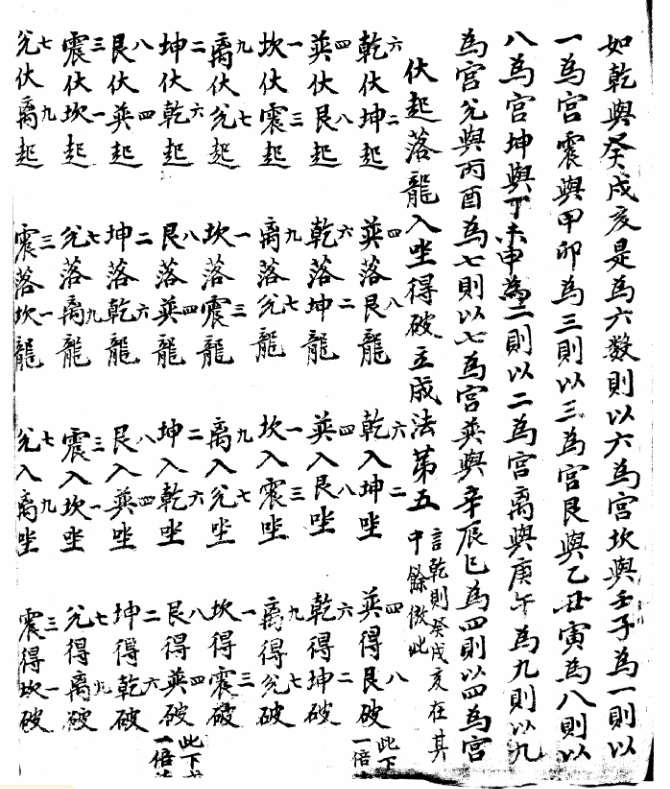 如乾與癸戌亥是為六数則以六為宮坎與壬子為一則以
一為宮震與甲卯為三則以三為宮艮與乙丑寅為八則以
八為宮坤與丁未申為二則以二為宮离與庚午為九則以九
為宮兊與丙酉為七則以七為宮巽與辛辰巳為四則以四為宮
伏起落龍入坐得破立成法第五 言乾則癸戌亥在其
中餘倣此
乾六伏坤二起 巽四落艮八龍 乾六入坤二坐 巽四得艮八破 此下
一倍
巽四伏艮八起 乾六落坤二龍 巽四入艮八坐 乾六得坤二破
坎一伏震三起 离九落兊七龍 坎一入震三坐 离九得兊七破
离九伏兊七起 坎一落震三龍 离九入兊七坐 坎一得震三破
坤二伏乾六起 艮八落巽四龍 坤二入乾六坐 艮八得巽四破 此下
一倍
艮八伏巽四起 坤二落乾六龍 艮八入巽四坐 坤二得乾六破
震三伏坎一起 兊七落离九龍 震三入坎一坐 兊七得离九破
兊七伏离九起 震三落坎一龍 兊七入离九坐 震三得坎一破